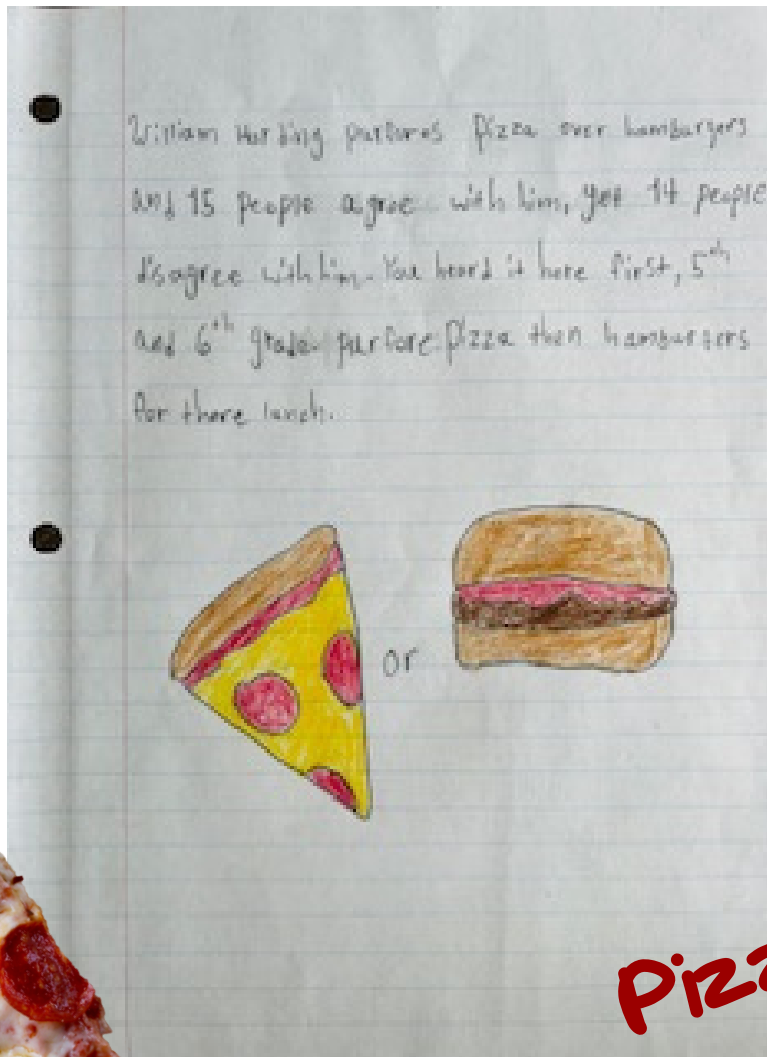 William Harding purfures Pizza over hamburgers
and 15 people agree with him, yet 14 people
disagree with him. You heard it here first, 5th
and 6th grade purfore Pizza then hamburgers
for there lunch.
or
Pizz